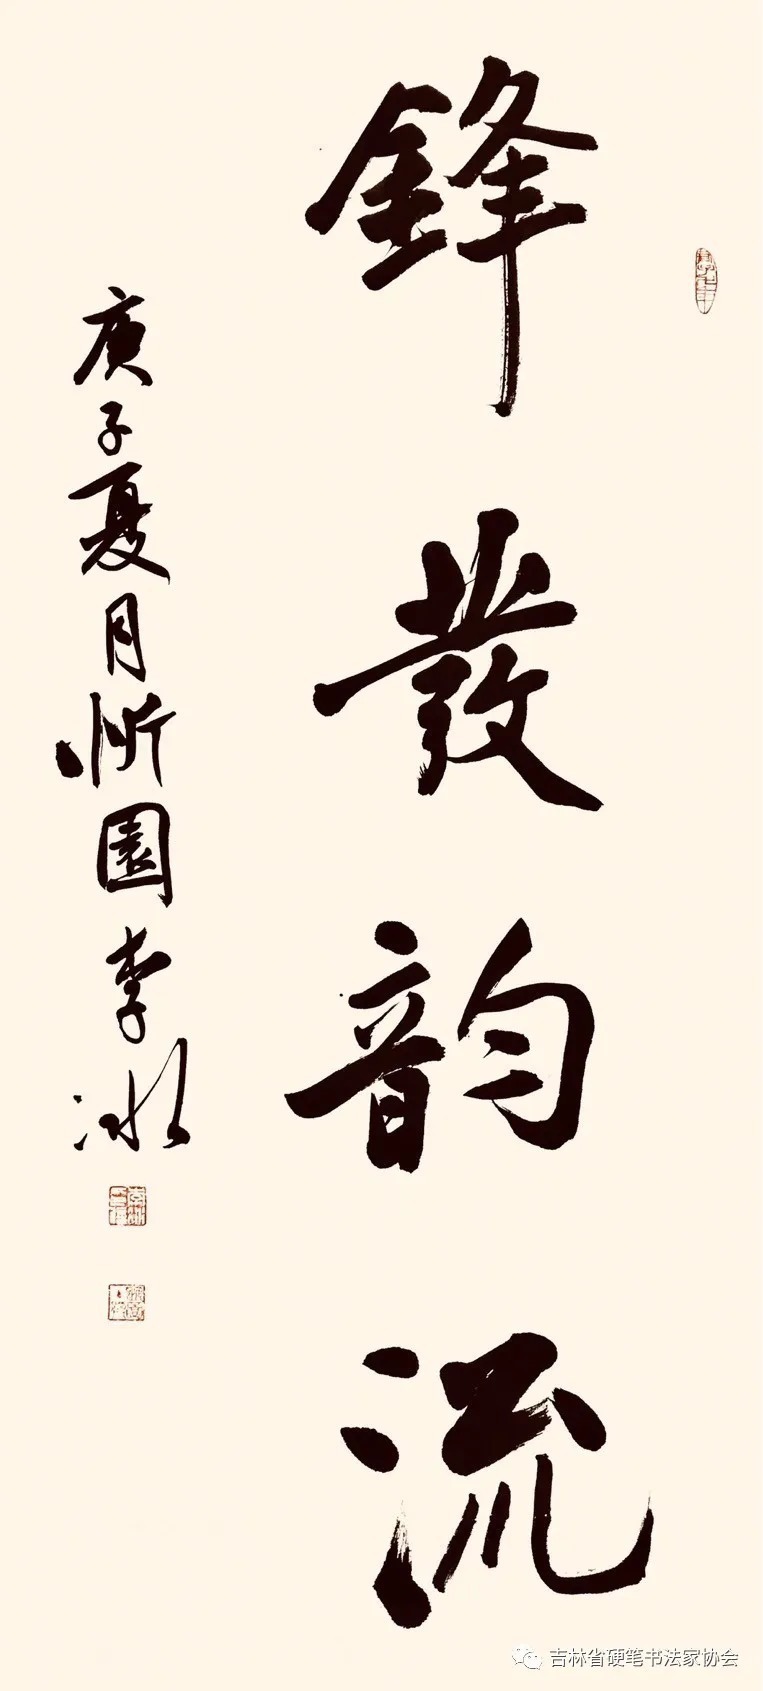 鋒發韵流
庚子夏月忻園李冰
吉林省硬笔书法家协会